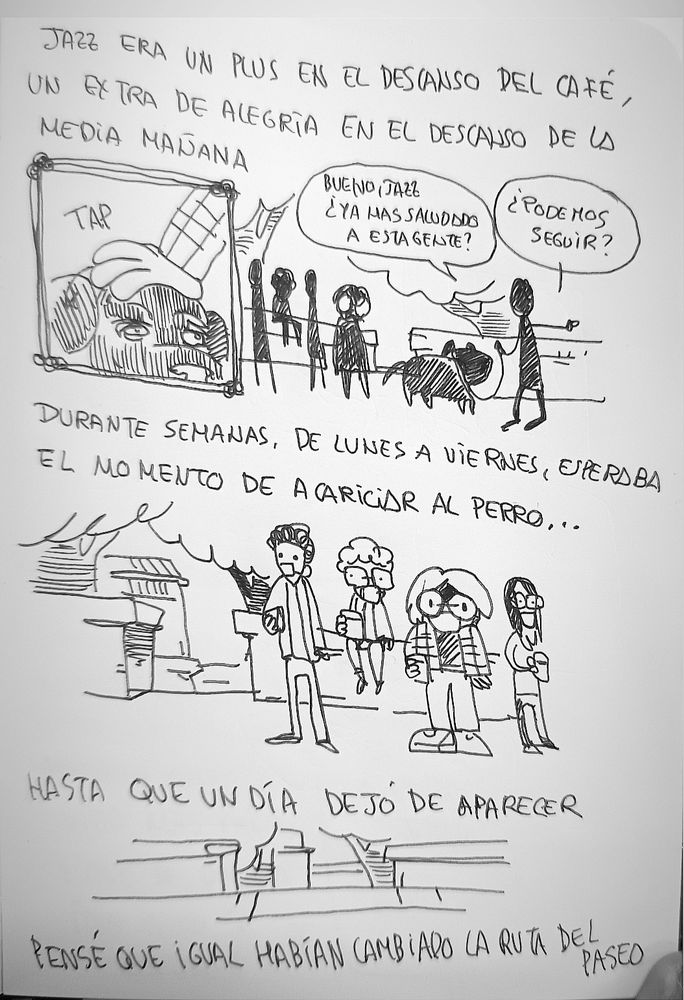 JAZZ ERA UN PLUS EN EL DESCANSO DEL CAFÉ,
UN EXTRA DE ALEGRÍA EN EL DESCANSO DE LA
MEDIA MAÑANA
TAP
BUENO, JAZZ
¿YA HAS SALUDADO
A ESTA GENTE?
¿PODEMOS
SEGUIR?
DURANTE SEMANAS, DE LUNES A VIERNES, ESPERABA
EL MOMENTO DE ACARICIAR AL PERRO,...
HASTA QUE UN DÍA DEJÓ DE APARECER
PENSÉ QUE IGUAL HABÍAN CAMBIADO LA RUTA DEL
PASEO